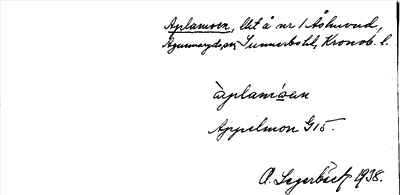 Aplamoen, lht å nr 1 Åshuvud,
Agunnaryds sn, Sunnerbo hd, Kronob. l.
àplamóen
Appelmon G15.
O. Segerbäck 1938.